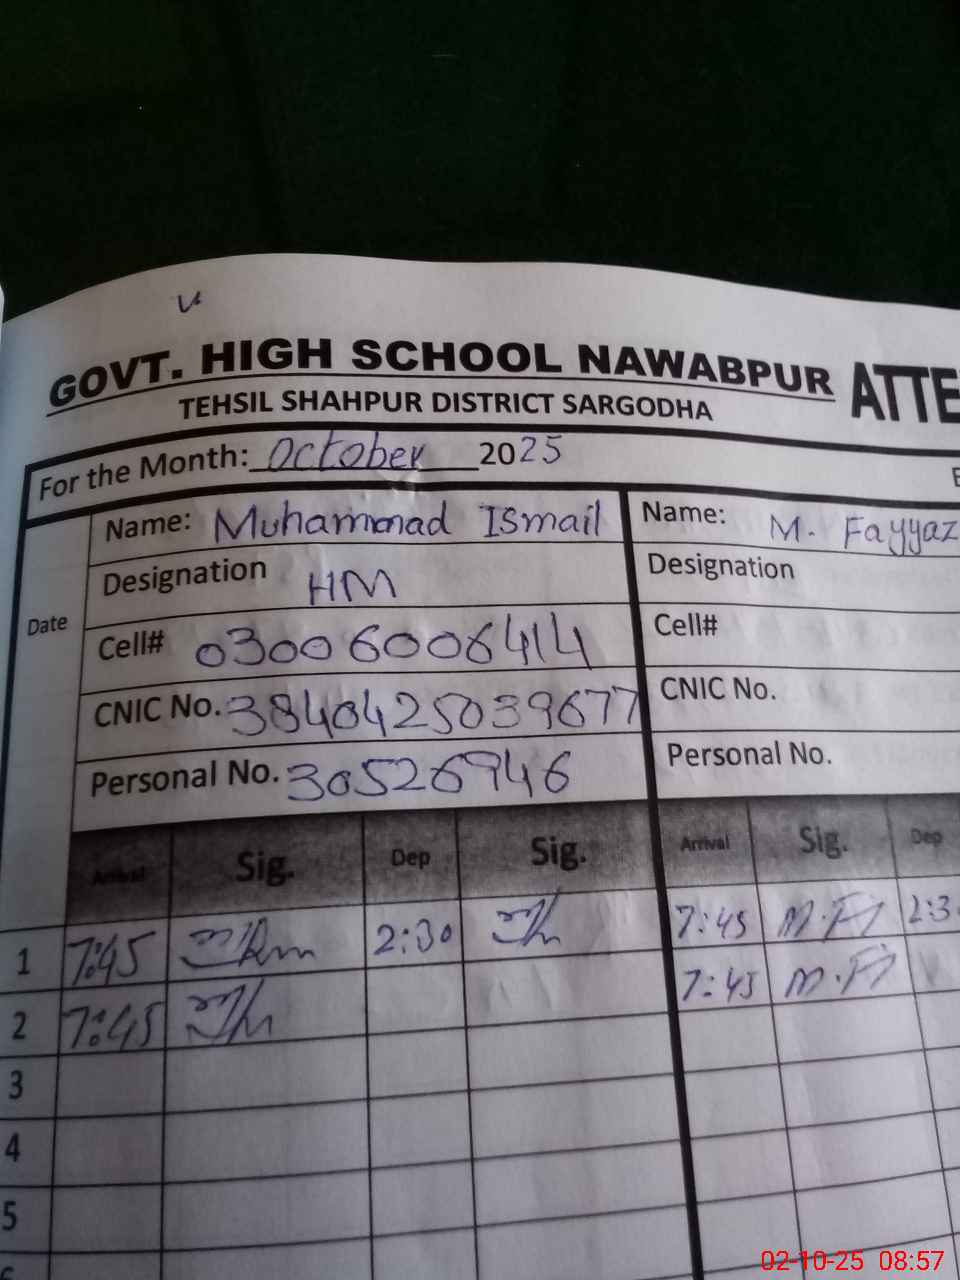 GOVT. HIGH SCHOOL NAWABPUR ATTE
TEHSIL SHAHPUR DISTRICT SARGODHA
For the Month: October 2025
Date
Name: Muhammad Ismail
Designation HM
Cell# 03006006414
CNIC No. 3840425039677
Personal No. 30526946
Name: M. Fayyaz
Designation
Cell#
CNIC No.
Personal No.
Arrival Sig. Dep Sig. Arrival Sig. Dep
1 7:45 2:30 7:45 2:3
2 7:45 7:45
3
4
5
02-10-25 08:57